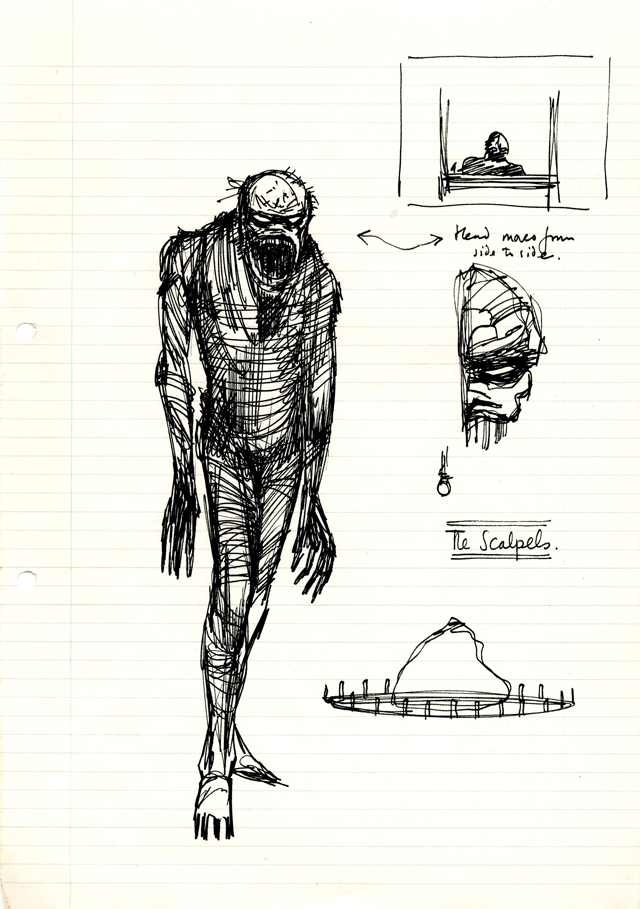 Head moves from
side to side.
The Scalpels.